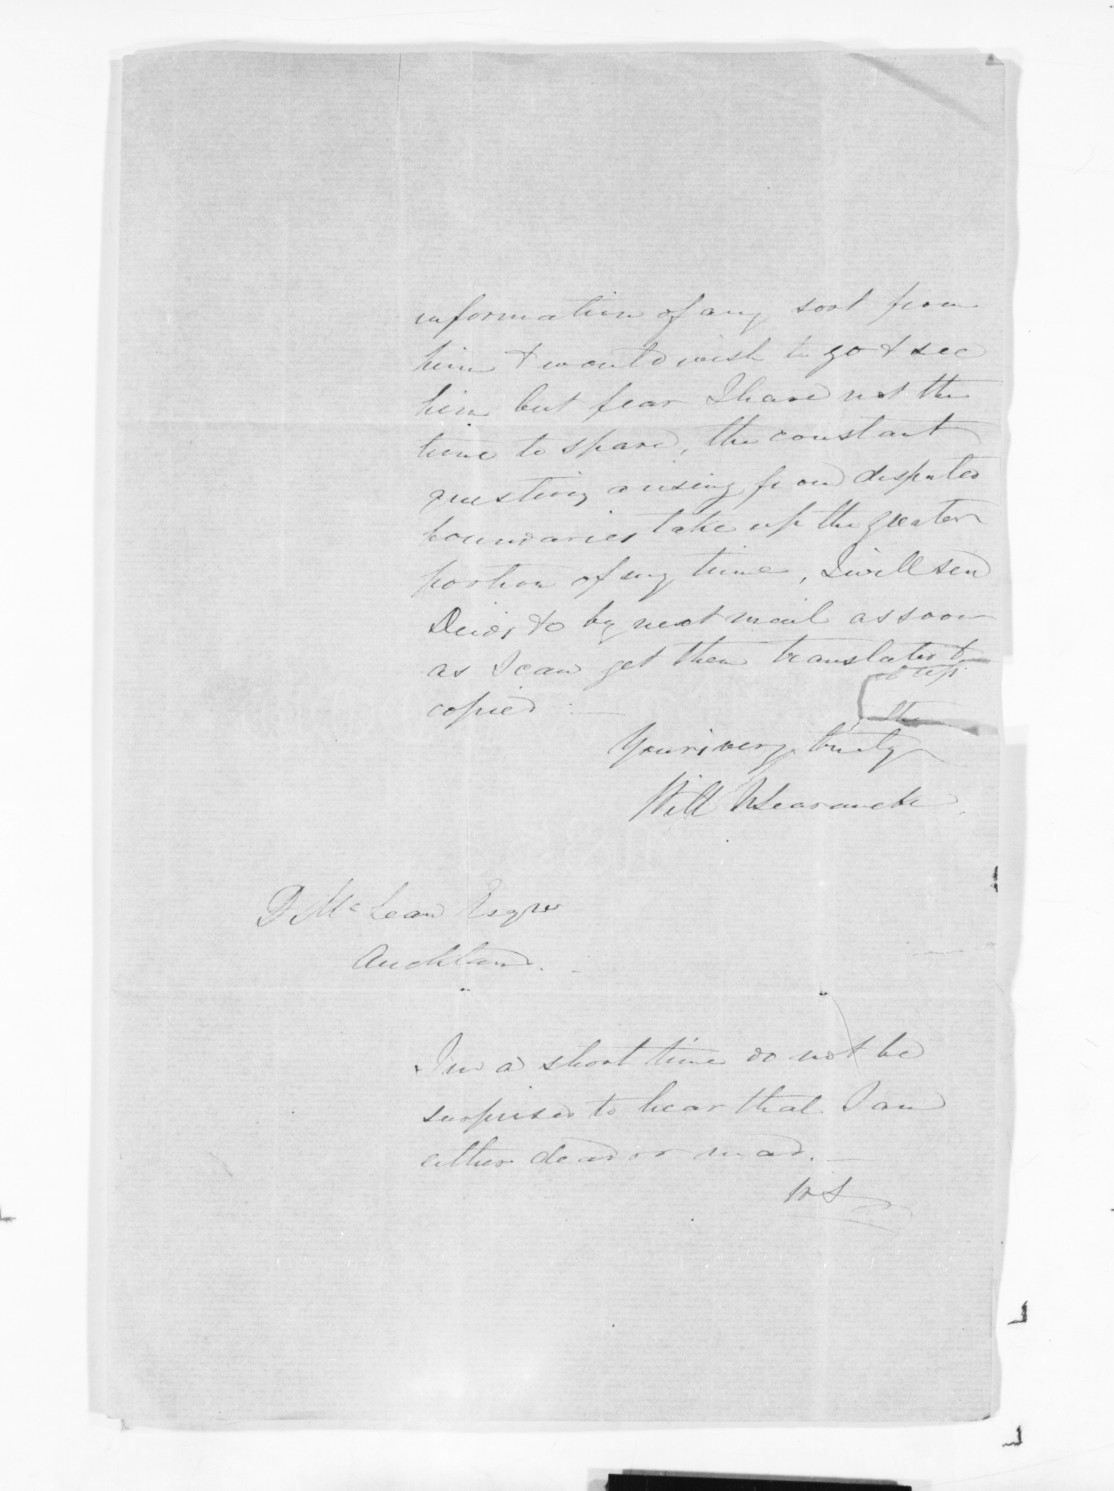 information of any sort from
him & would wish to go & see
him but fear I have not the
time to spare, the constant
questions arising from disputed
boundaries take up the greater
portion of my time, I will send
Deeds &c by next mail as soon
as I can get them translated &
copied. —
Yours very truly
Will N Searancke
D McLean Esqre
Auckland.
In a short time do not be
surprised to hear that I am
either dead or mad. —
WS